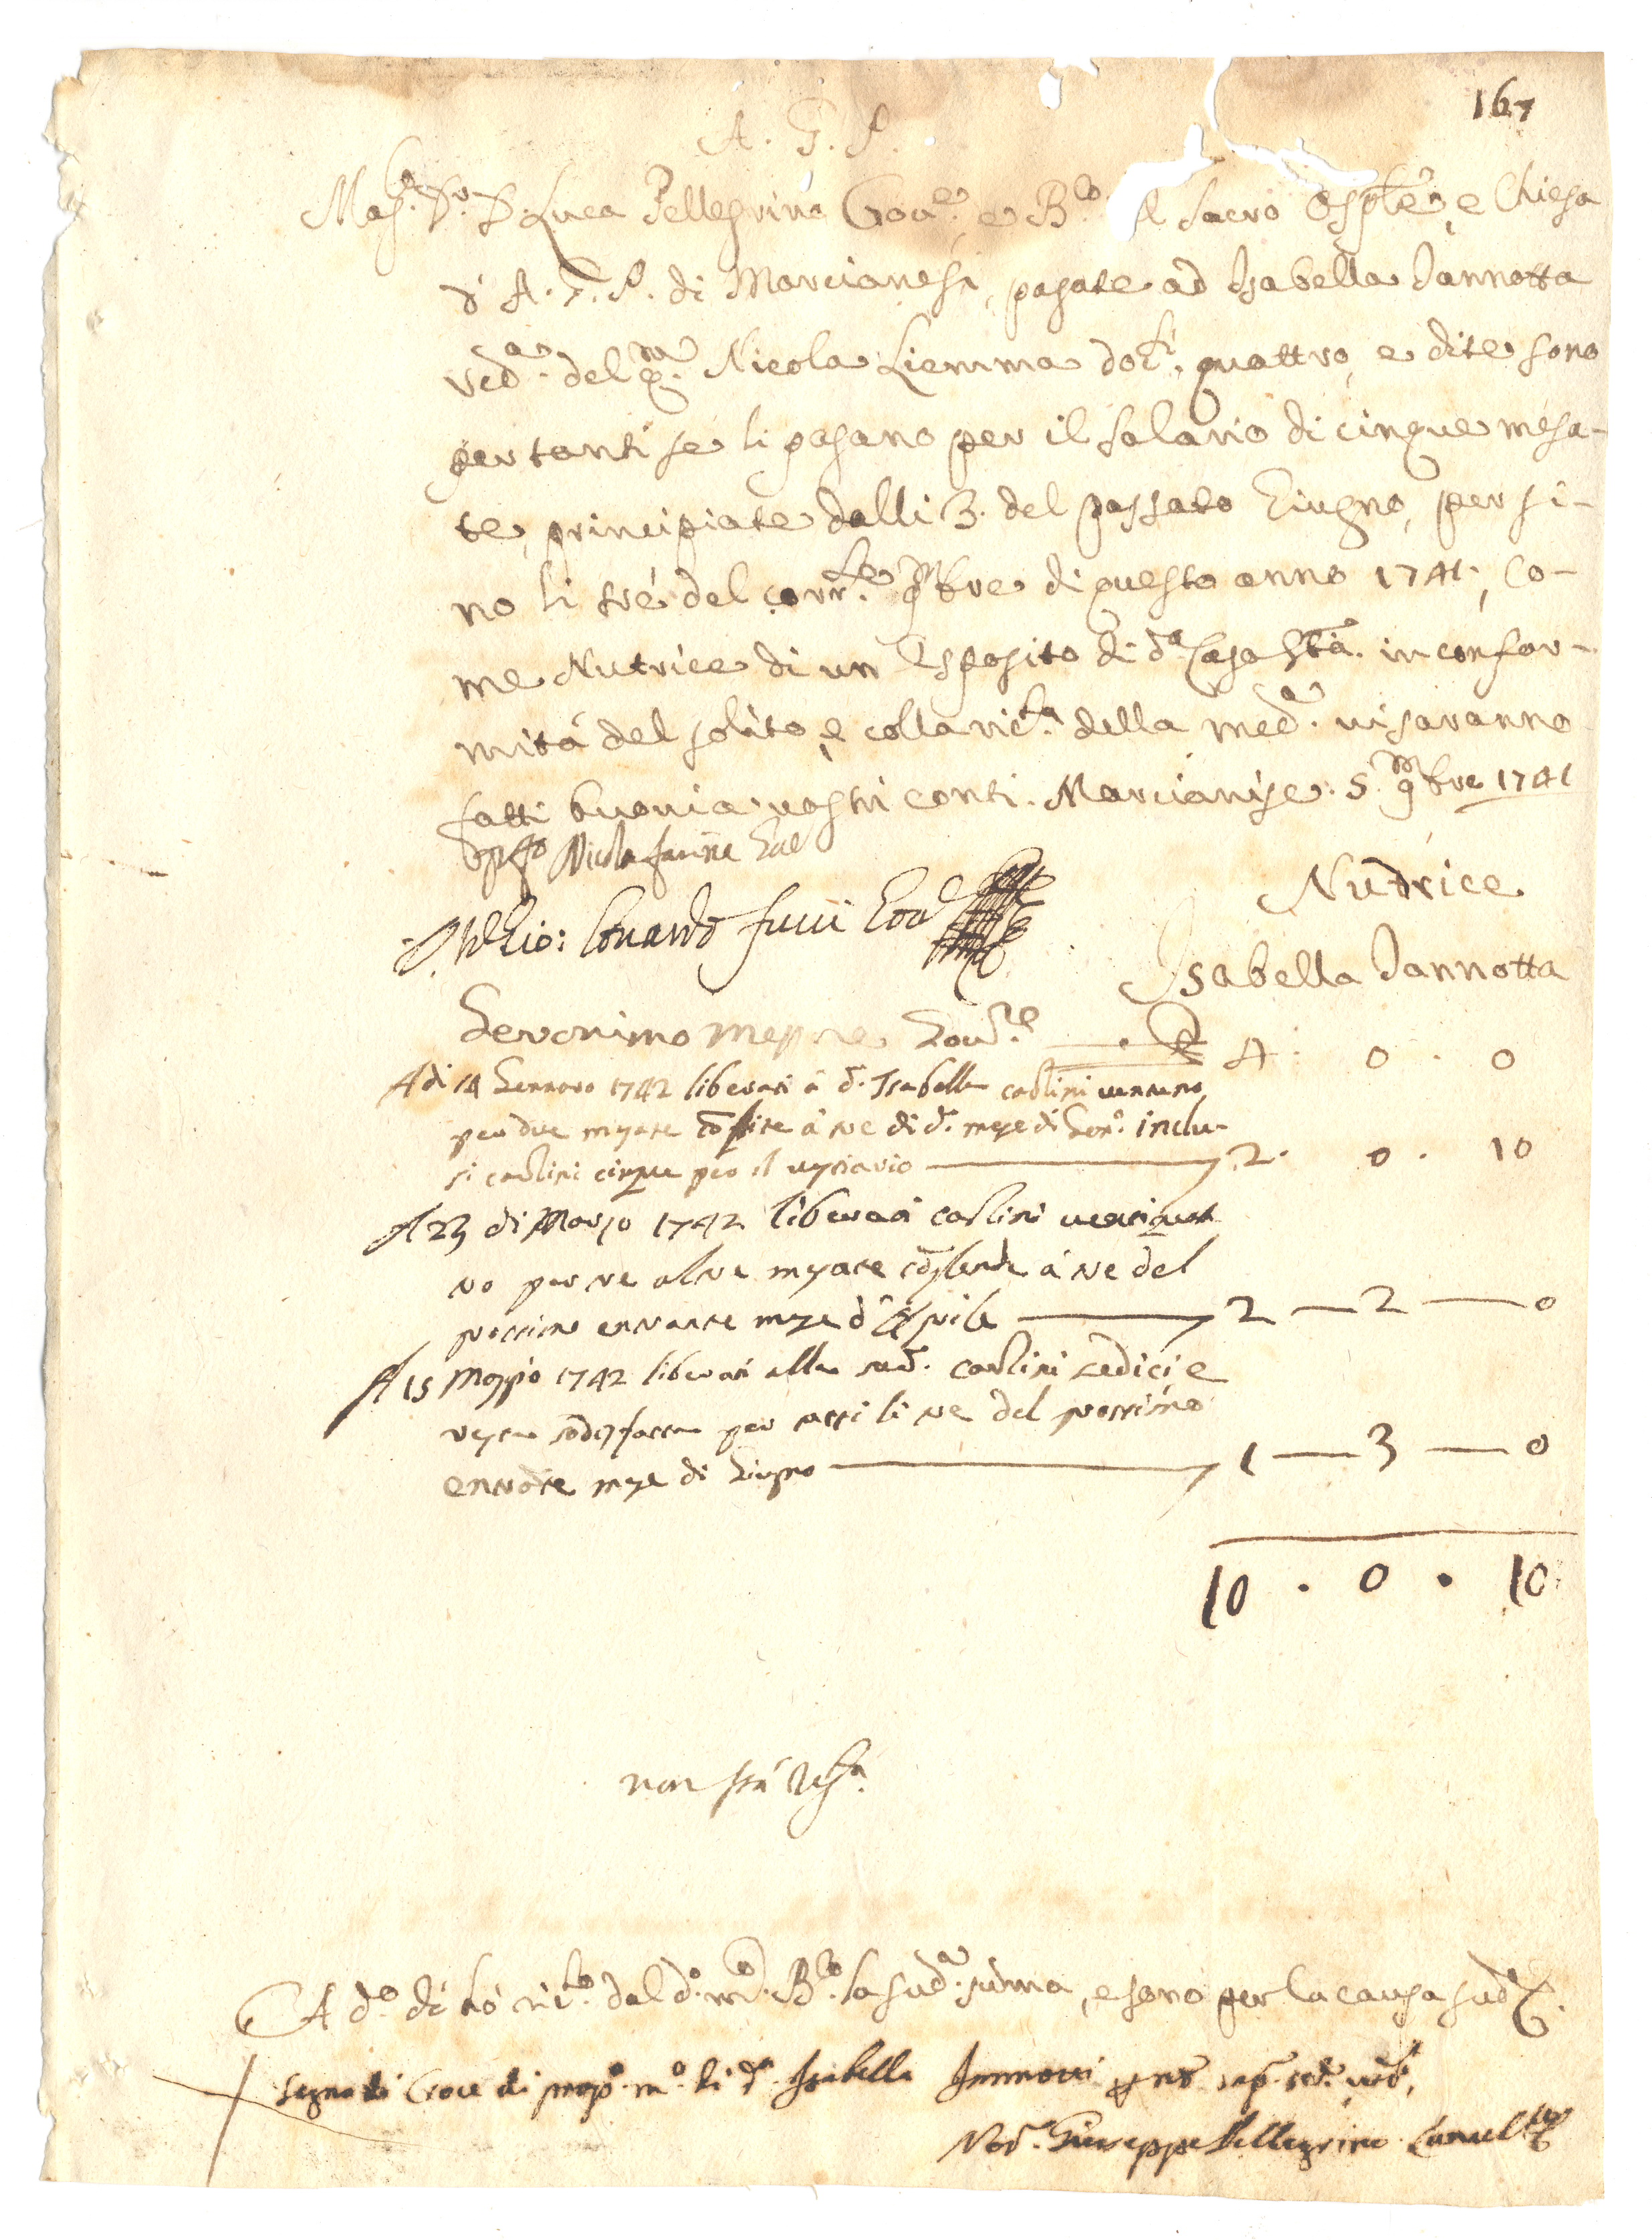 167
A. G. P.
Mag.co Dr. D. Luca Pellegrino Gov.e e B.lo Sacro Osp.le, e Chiesa
d'A. G. P. di Marcianesi, pagate ad Isabella Iannotta
ved.a del q.m Nicola Liemma doc.ti quattro, e dite sono
per tanti se li pagano per il salario di cinque mesa-
te, principiate dalli 3. del passato Giugno, per si-
no li tré del corr.te 9mbre di questo anno 1741, co-
me Nutrice di un Esposito di d.a Casa S.ta in confor-
mità del solito, e colla ric.ta della med.a vi saranno
fatti buoni a' vostri conti. Marcianise. 5. 9mbre 1741
Nicola farina
Lonardo
Nudrice
Isabella Iannotta
Geronimo Gov.re 4 . 0 . 0
A di 14 Gennaro 1742 liberati à d. Isabella carlini ventuno
per due mesate à tre di d. mese di Gen.o inclu-
si carlini cinque per il vestiario 2 . 0 . 10
A 23 di Marzo 1742 liberati carlini ventiquat-
tro per tre altre mesate à tre del
prossimo entrante mese d'Aprile 2 — 2 — 0
A 15 Maggio 1742 liberati alla sud. carlini sedici e
resta sodisfatta per tutti li tre del prossimo
entrate mese di Giugno 1 — 3 — 0
10 . 0 . 10
non stà
A d.o dì hò ric.to dal d.o m.co B.lo la sud.a summa, e sono per la causa sud.a
Segno di Croce di prop.a m.o di d.a Isabella Iannotti
Not.r Giuseppe Pellegrino Cancell.re